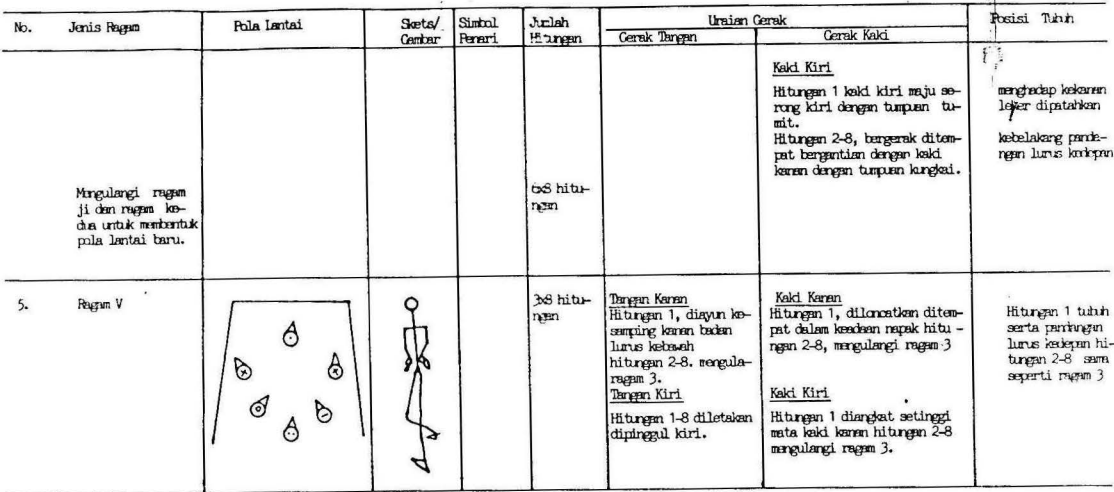 No.
Jenis Ragam
Pola Lantai
Skets/
Gambar
Simbol
Penari
Jumlah
Hitungan
Uraian Gerak
Gerak Tangan
Gerak Kaki
Posisi Tubuh
Mengulangi ragam
ji dan ragam ke-
dua untuk membentuk
pola lantai baru.
6x8 hitu-
ngan
Kaki Kiri
Hitungan 1 kaki kiri maju se-
rong kiri dengan tumpuan tu-
mit.
Hitungan 2-8, bergerak ditem-
pat bergantian dengan kaki
kanan dengan tumpuan kungkai.
menghadap kekanan
leher dipatahkan
kebelakang panda-
ngan lurus kedepan
5.
Ragam V
3x8 hitu-
ngan
Tangan Kanan
Hitungan 1, diayun ke-
samping kanan badan
lurus kebawah
hitungan 2-8. mengula-
ragam 3.
Tangan Kiri
Hitungan 1-8 diletakan
dipinggul kiri.
Kaki Kanan
Hitungan 1, diloncatkan ditem-
pat dalam keadaan napak hitu-
ngan 2-8, mengulangi ragam 3
Kaki Kiri
Hitungan 1 diangkat setinggi
mata kaki kanan hitungan 2-8
mengulangi ragam 3.
Hitungan 1 tubuh
serta pandangan
lurus kedepan hi-
tungan 2-8 sama
seperti ragam 3